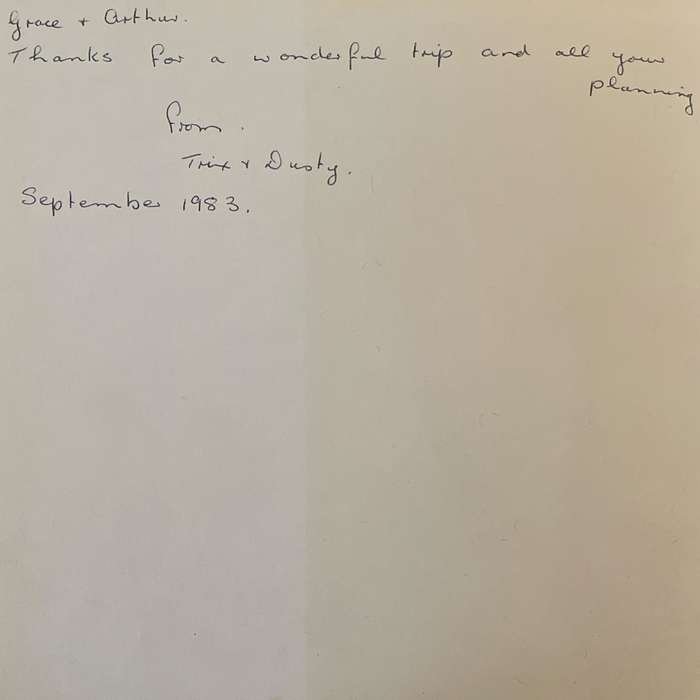 Grace + Arthur.
Thanks for a wonderful trip and all your
planning
from.
Trix + Dusty.
September 1983.